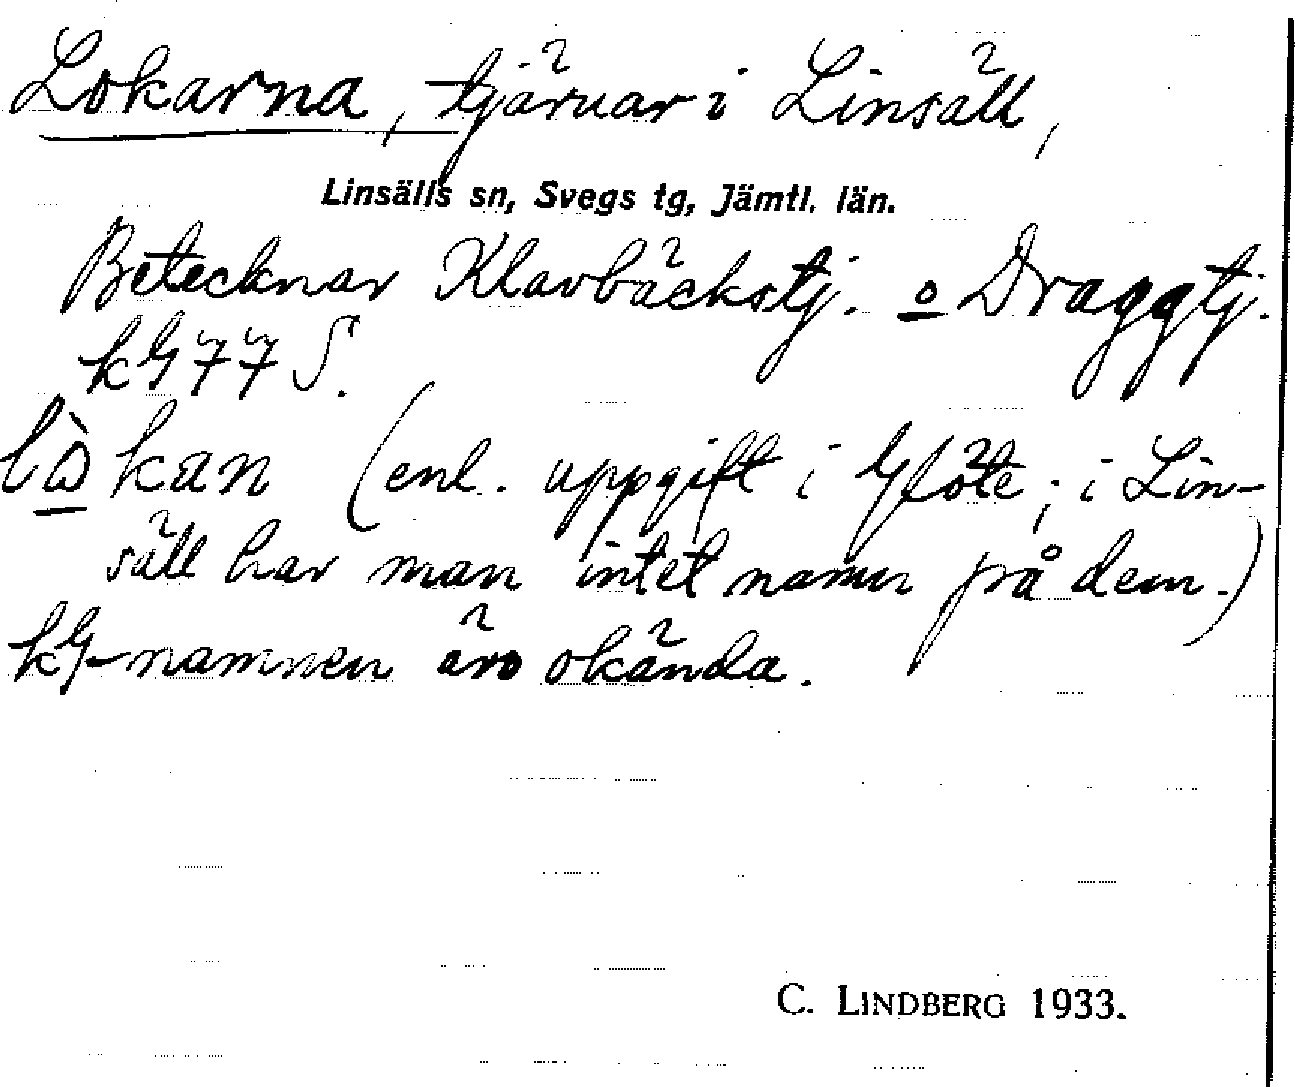 Lokarna, tjärnar i Linsäll,
Linsälls sn, Svegs tg, Jämtl. län.
Betecknar Klavbäckstj. o Draggtj.
kG 77 S.
kan (enl. uppgift i Glöte; i Lin-
säll har man intet namn på dem.)
kG-namnen äro okända.
C. LINDBERG 1933.